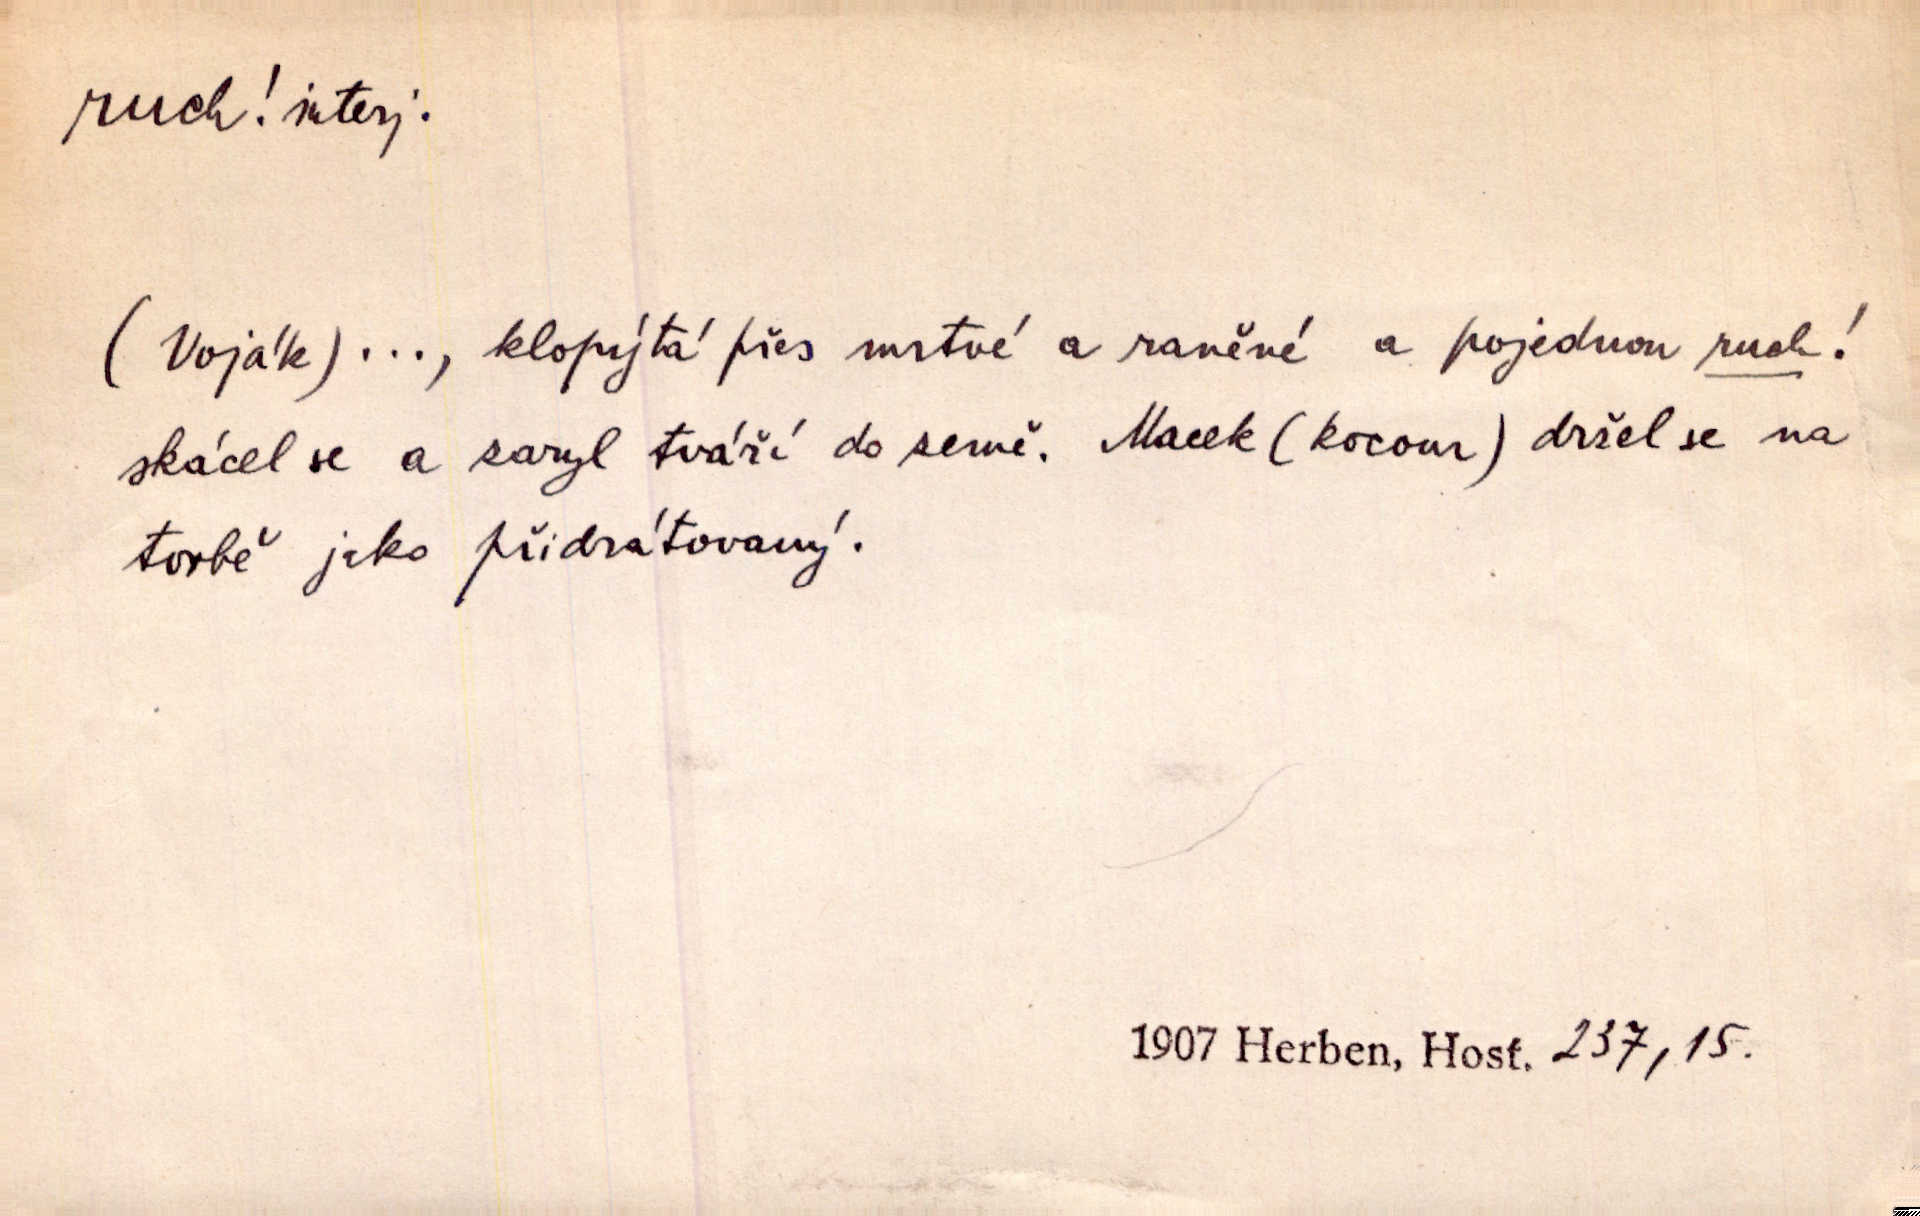 ruch! interj.
(Voják) ..., klopýtá přes mrtvé a raněné a pojednou ruch!
skácel se a zaryl tváří do země. Macek (kocour) držel se na
torbě jako přidrátovaný.
1907 Herben, Host. 237, 15.